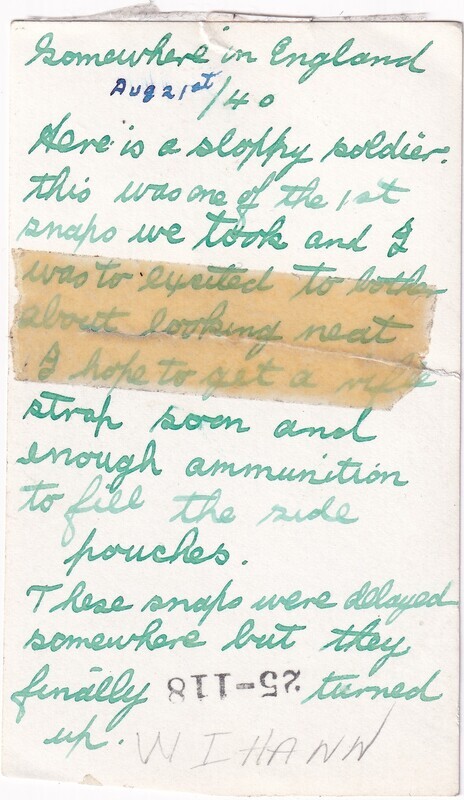 Somewhere in England
Aug 21st /40
Here is a sloppy soldier.
this was one of the 1st
snaps we took and I
was to excited to bother
about looking neat
I hope to get a rifle
strap soon and
enough ammunition
to fill the side
pouches.
These snaps were delayed
somewhere but they
finally 25-118 turned
up. WIHANN